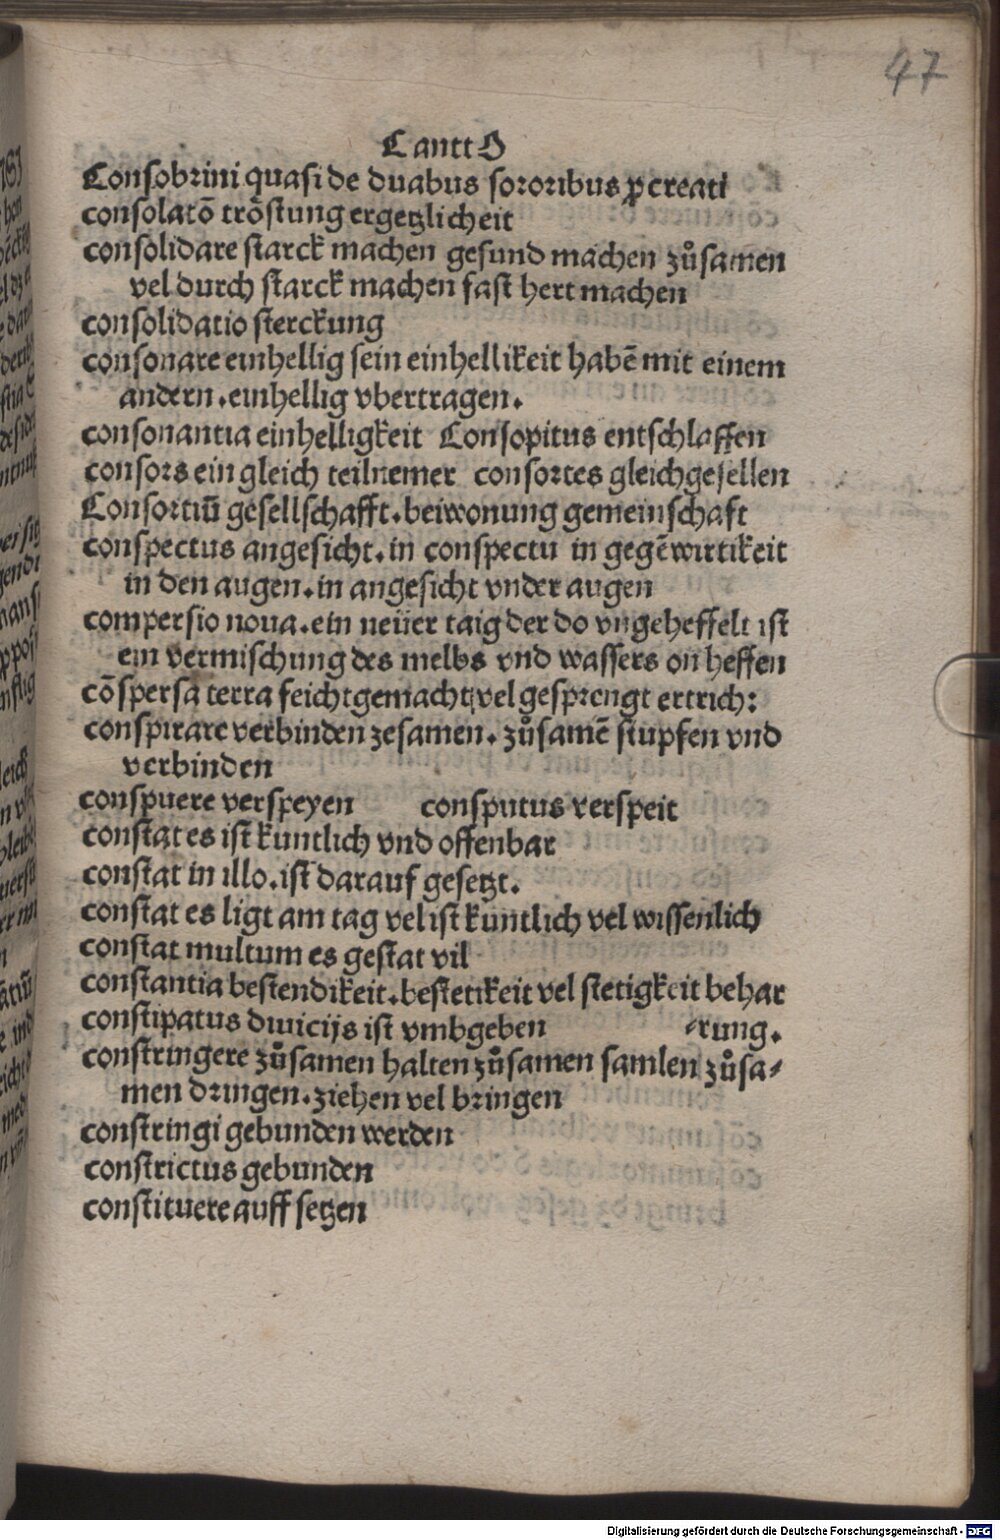 47
C antt O
Conſobrini quaſi de duabus sororibus ꝓcreati
conſolatō trőſtung ergetzlicheit
conſolidare ſtarck machen geſund machen zůſamen
vel durch ſtarck machen faſt hert machen
conſolidatio ſterckung
conſonare einhellig ſein einhellikeit habē mit einem
andern. einhellig vbertragen.
conſonantia einhelligkeit Conſopitus entſchlaffen
conſors ein gleich teilnemer conſortes gleichgeſellen
Conſortiū geſellſchafft. beiwonung gemeinſchaft
conſpectus angeſicht. in conſpectu in gegēwirtikeit
in den augen. in angeſicht vnder augen
comperſio noua. ein neüer taig der do vngeheffelt iſt
ein vermiſchung des melbs vnd waſſers on heffen
cōſperſa terra feichtgemacht vel geſprengt ertrich:
conſpirare verbinden zeſamen. zůſamē ſtupfen vnd
verbinden
conſpuere verſpeyen conſputus verſpeit
conſtat es iſt kuntlich vnd offenbar
conſtat in illo. iſt darauf geſetzt.
conſtat es ligt am tag vel iſt kuntlich vel wiſſenlich
conſtat multum es geſtat vil
conſtantia beſtendikeit. beſtetikeit vel ſtetigkeit behar
conſtipatus diuicijs iſt vmbgeben ⸗rung.
conſtringere zůſamen halten zůſamen ſamlen zůſa⸗
men dringen. ziehen vel bringen
conſtringi gebunden werden
conſtrictus gebunden
conſtituere auff ſetzen
Digitalisierung gefördert durch die Deutsche Forschungsgemeinschaft - DFG